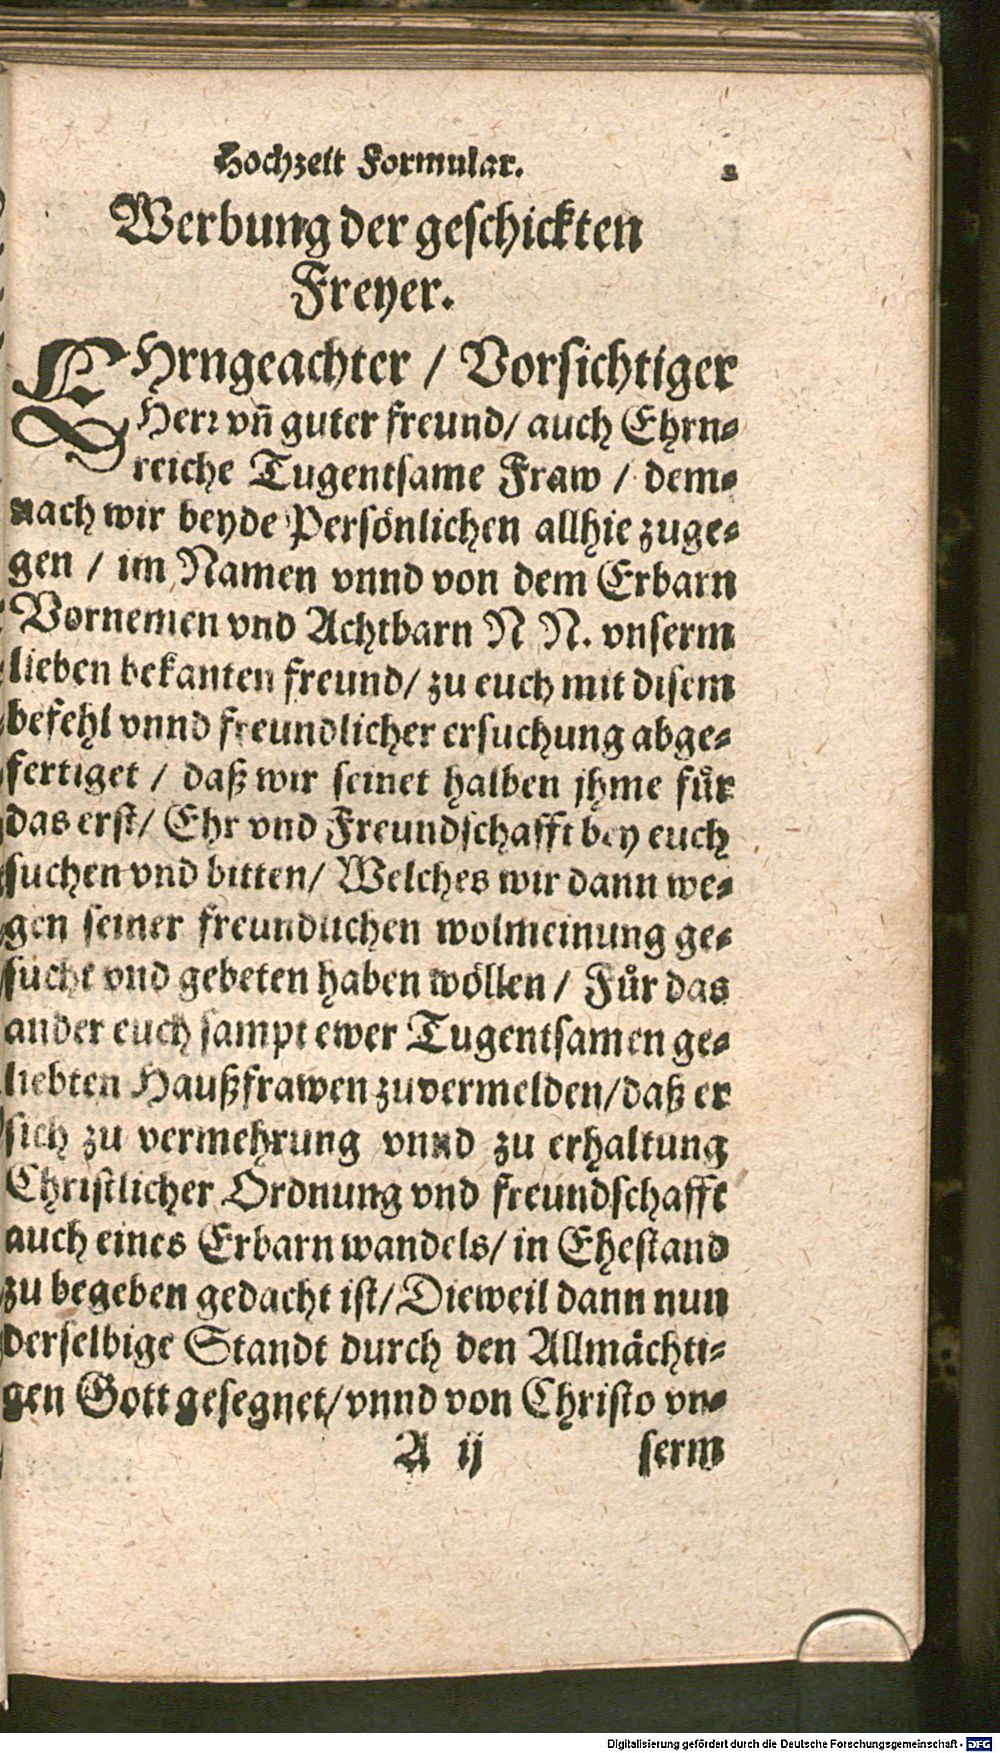 Hochzeit Formular. 2
Werbung der geschickten
Freyer.
EHrngeachter / Vorsichtiger
Herr vn̄ guter freund/ auch Ehrn⸗
reiche Tugentsame Fraw / dem⸗
nach wir beyde Persönlichen allhie zuge⸗
gen / im Namen vnnd von dem Erbarn
Vornemen vnd Achtbarn N N. vnserm
lieben bekanten freund/ zu euch mit disem
befehl vnnd freundlicher ersuchung abge⸗
fertiget / daß wir seinet halben jhme fuͤr
das erst/ Ehr vnd Freundschafft bey euch
suchen vnd bitten/ Welches wir dann we⸗
gen seiner freundlichen wolmeinung ge⸗
sucht vnd gebeten haben wöllen / Fuͤr das
ander euch sampt ewer Tugentsamen ge⸗
liebten Haußfrawen zuvermelden/daß er
sich zu vermehrung vnnd zu erhaltung
Christlicher Ordnung vnd freundschafft
auch eines Erbarn wandels/ in Ehestand
zu begeben gedacht ist/ Dieweil dann nun
derselbige Standt durch den Allmächti⸗
gen Gott gesegnet/ vnnd von Christo vn⸗
A ij serm
Digitalisierung gefördert durch die Deutsche Forschungsgemeinschaft - DFG